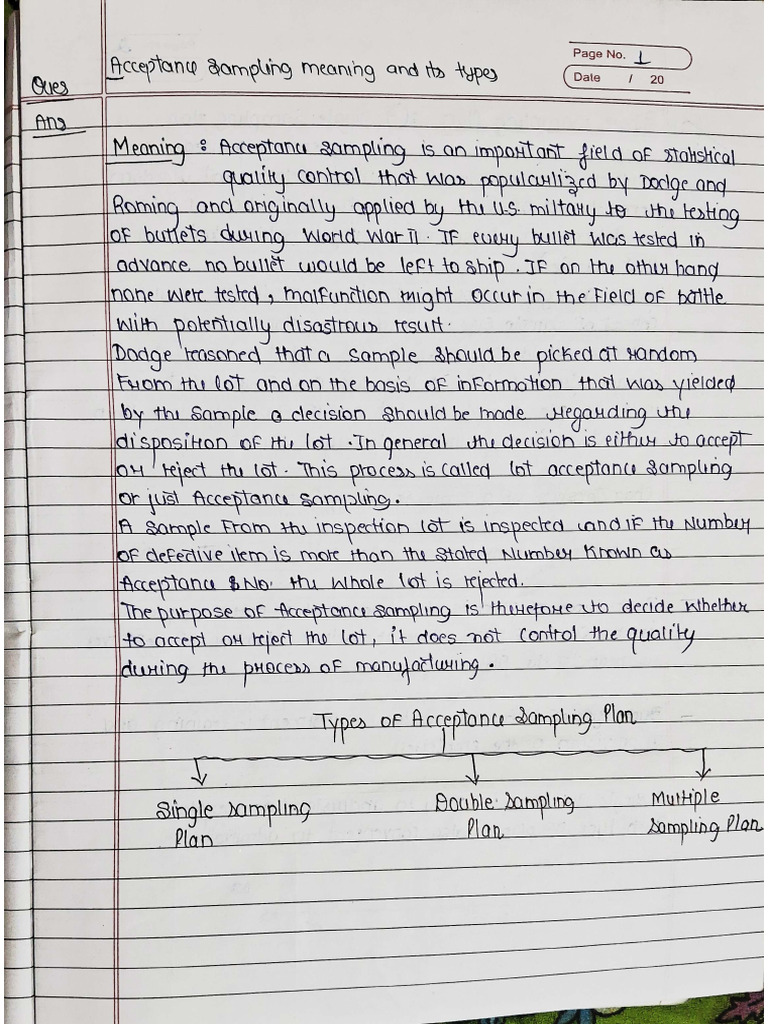 Page No. 1
Date / 20
Ques
Acceptance Sampling meaning and its types
Ans
Meaning : Acceptance sampling is an important field of statistical
quality control that was popularlized by Dodge and
Roming and originally applied by the U.S. miltary to the testing
of bullets during World War II. If every bullet was tested in
advance no bullet would be left to ship. If on the other hand
none were tested, malfunction might occur in the field of battle
with potentially disastrous result.
Dodge reasoned that a sample should be picked at random
from the lot and on the basis of information that was yielded
by the sample a decision should be made regarding the
disposition of the lot. In general the decision is either to accept
or reject the lot. This process is called lot acceptance sampling
or just Acceptance sampling.
A sample from the inspection lot is inspected and if the Number
of defective item is more than the stated Number Known as
Acceptance No. the whole lot is rejected.
The purpose of Acceptance sampling is therefore to decide whether
to accept or reject the lot, it does not control the quality
during the process of manufacturing.
Types of Acceptance Sampling Plan
Single sampling Plan
Double Sampling Plan
Multiple Sampling Plan